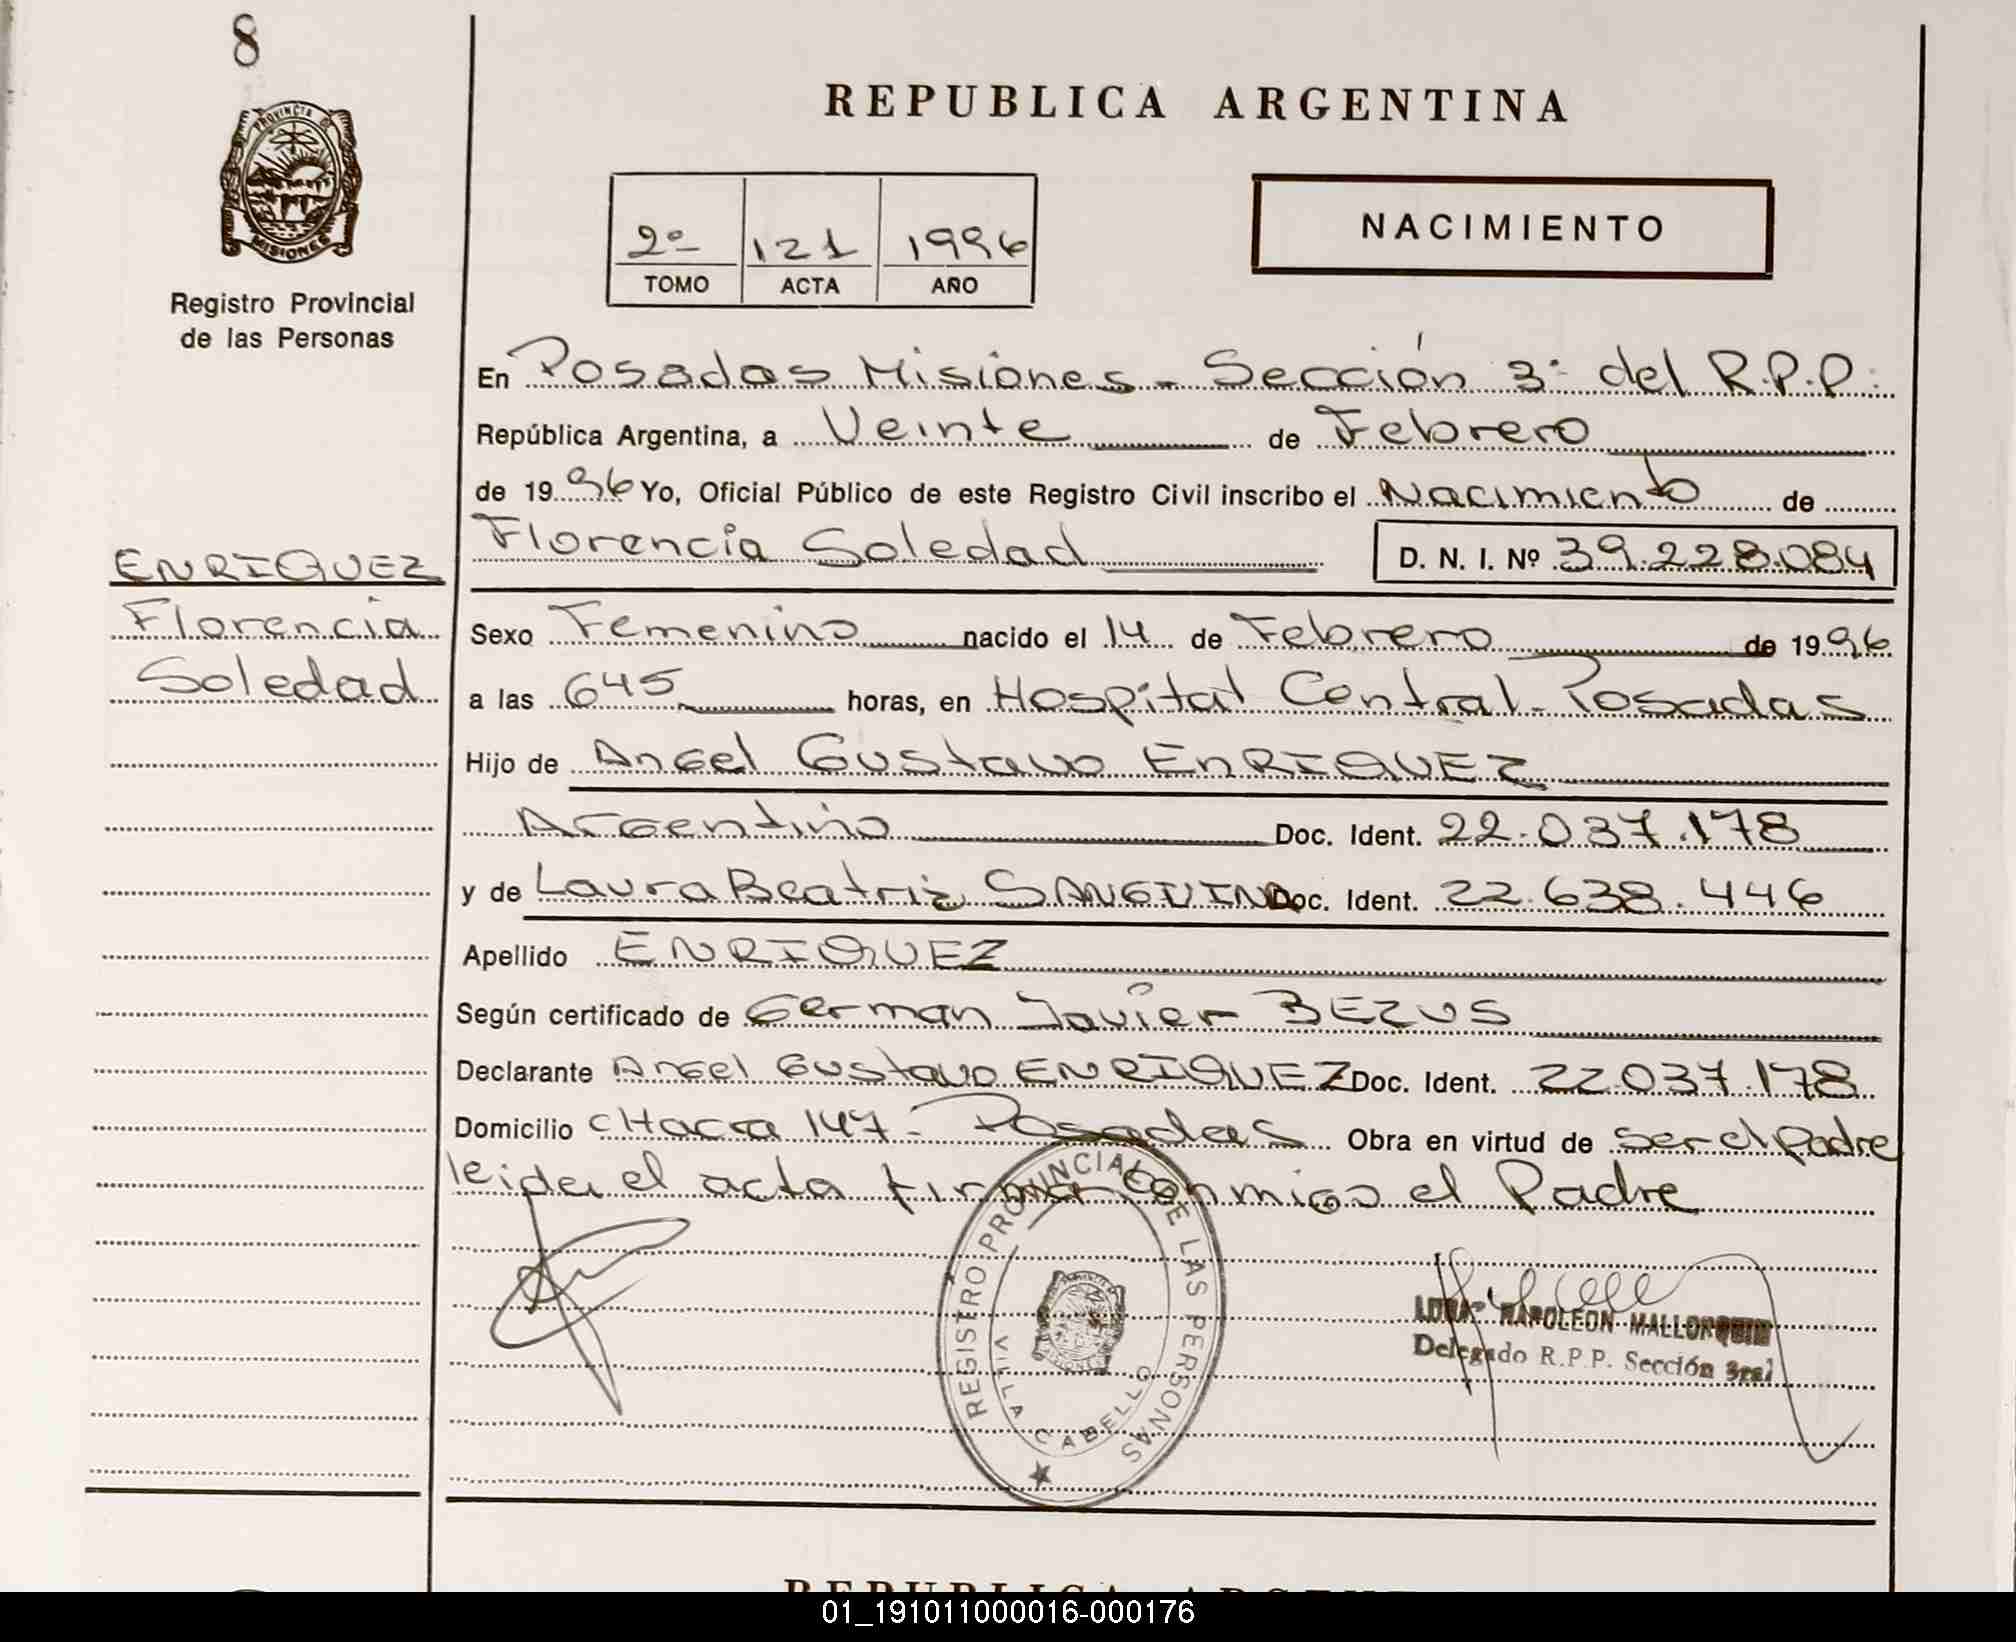 8
PROVINCIA DE
MISIONES
Registro Provincial
de las Personas
REPUBLICA ARGENTINA
2º 121 1996
TOMO ACTA AÑO
NACIMIENTO
En Posadas Misiones - Sección 3ª del R.P.P.
República Argentina, a Veinte de Febrero
de 1996 Yo, Oficial Público de este Registro Civil inscribo el Nacimiento de
Florencia Soledad D. N. I. Nº 39.228.084
ENRIQUEZ
Florencia
Soledad
Sexo Femenino nacido el 14 de Febrero de 1996
a las 645 horas, en Hospital Central - Posadas
Hijo de Angel Gustavo ENRIQUEZ
Argentino Doc. Ident. 22.037.178
y de Laura Beatriz SANGUINA Doc. Ident. 22.638.446
Apellido ENRIQUEZ
Según certificado de German Javier BEZUS
Declarante Angel Gustavo ENRIQUEZ Doc. Ident. 22.037.178
Domicilio CHacra 147 - Posadas Obra en virtud de ser el padre
leida el acta firma conmigo el Padre
REGISTRO PROVINCIAL DE LAS PERSONAS
VILLA CABELLO
NAPOLEON MALLORQUIN
Delegado R.P.P. Sección 3ra
REPUBLICA
01_191011000016-000176